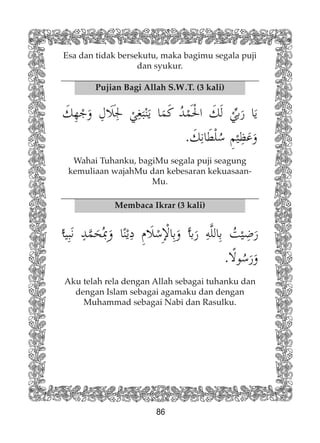 Esa dan tidak bersekutu, maka bagimu segala puji
dan syukur.
Pujian Bagi Allah S.W.T. (3 kali)
يَا رَبِّيْ لَكَ الْحَمْدُ كَمَا يَنْبَغِيْ لِجَلَالِ وَجْهِكَ
وَعَظِيْمِ سُلْطَانِكَ.
Wahai Tuhanku, bagiMu segala puji seagung
kemuliaan wajahMu dan kebesaran kekuasaan-
Mu.
Membaca Ikrar (3 kali)
رَضِيْتُ بِاللهِ رَبًّا وَبِالْإِسْلَامِ دِيْنًا وَبِمُحَمَّدٍ نَبِيًّا
وَرَسُوْلًا.
Aku telah rela dengan Allah sebagai tuhanku dan
dengan Islam sebagai agamaku dan dengan
Muhammad sebagai Nabi dan Rasulku.
86